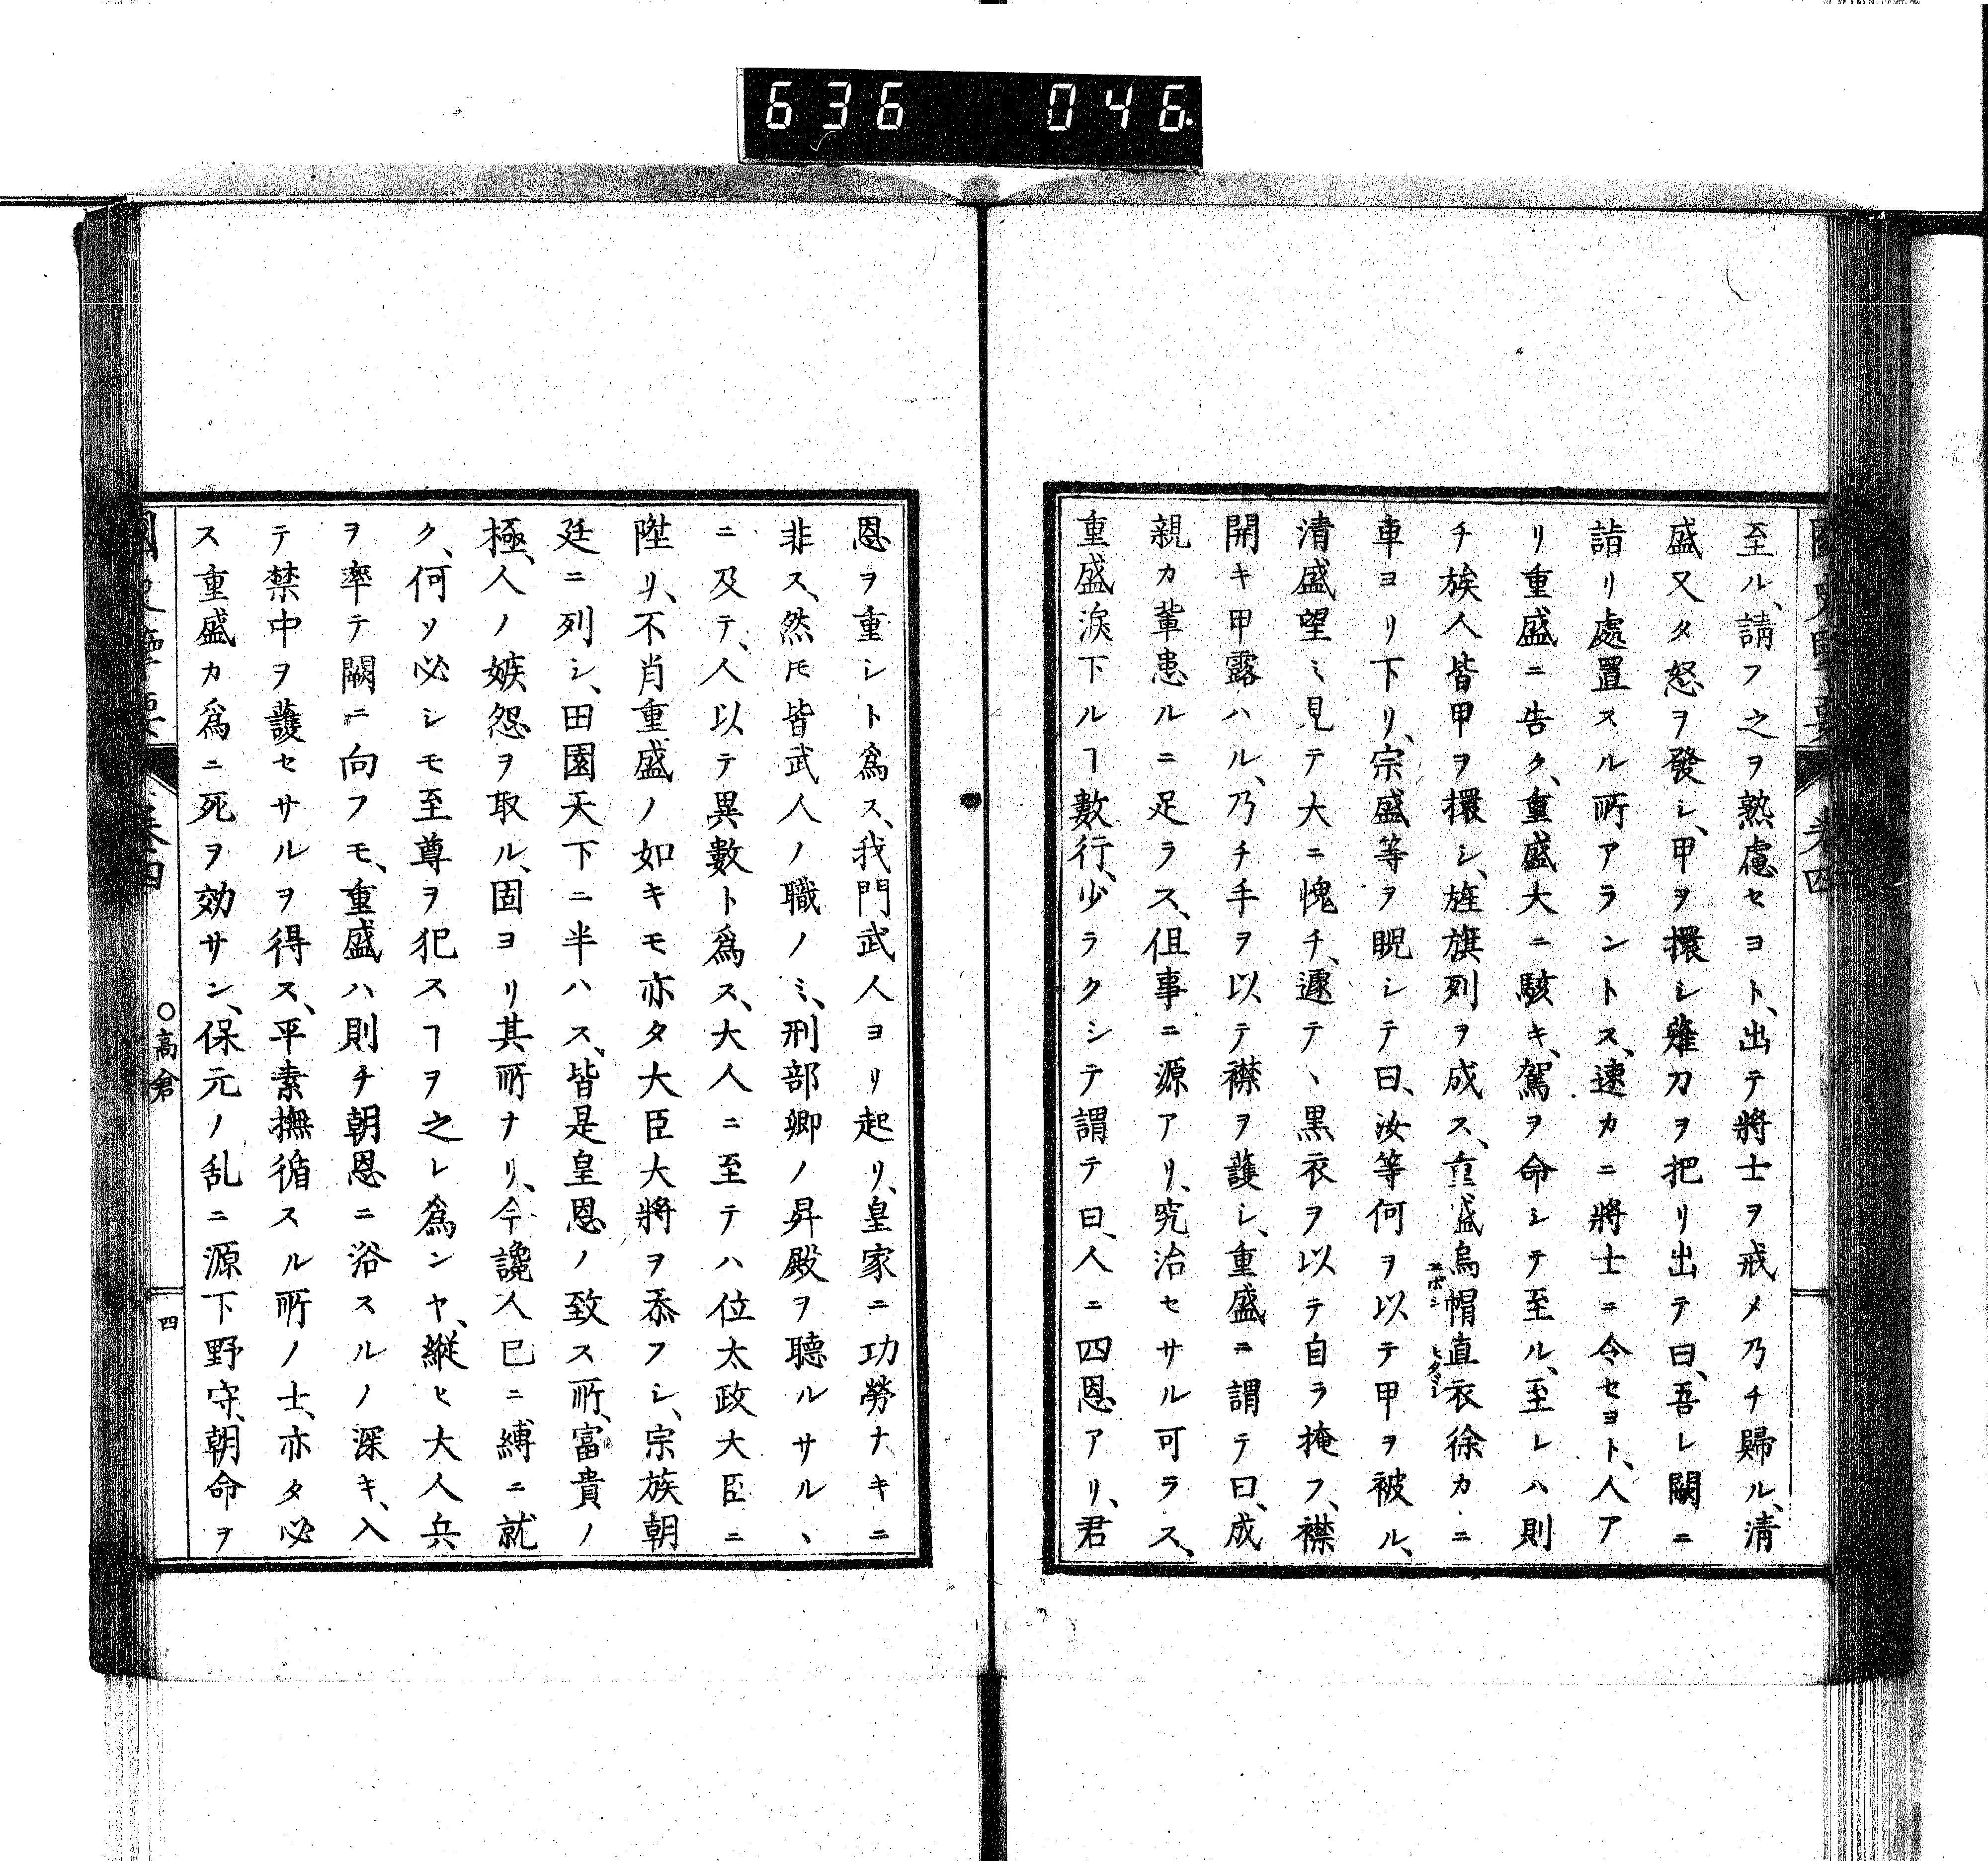 636 046
至ル、請フ之ヲ熟慮セヨト、出テ將士ヲ戒メ乃チ歸ル、淸
盛又タ怒ヲ發シ、甲ヲ擐シ薙刀ヲ把リ出テ曰、吾レ闕ニ
詣リ處置スル所アラントス、速カニ將士ニ令セヨト、人ア
リ重盛ニ告ク、重盛大ニ駭キ、駕ヲ命シテ至ル、至レハ則
チ族人皆甲ヲ擐シ、旌旗列ヲ成ス、重盛烏帽直衣徐カニ
車ヨリ下リ、宗盛等ヲ睨シテ曰、汝等何ヲ以テ甲ヲ被ル、
清盛望ミ見テ大ニ愧チ、遽テヽ黒衣ヲ以テ自ラ掩フ、襟
開キ甲露ハル、乃チ手ヲ以テ襟ヲ護シ、重盛ニ謂テ曰、成
親カ輩患ルニ足ラス、但事ニ源アリ、究治セサル可ラス、
重盛淚下ルヿ數行、少ラクシテ謂テ曰、人ニ四恩アリ、君
恩ヲ重シト爲ス、我門武人ヨリ起リ、皇家ニ功勞ナキニ
非ス、然モ皆武人ノ職ノミ、刑部卿ノ昇殿ヲ聽ルサルヽ
ニ及テ、人以テ異數ト爲ス、大人ニ至テハ位太政大臣ニ
陞リ、不肖重盛ノ如キモ亦タ大臣大將ヲ忝フシ、宗族朝
廷ニ列シ、田園天下ニ半ハス、皆是皇恩ノ致ス所、富貴ノ
極、人ノ嫉怨ヲ取ル、固ヨリ其所ナリ、今讒人已ニ縛ニ就
ク、何ソ必シモ至尊ヲ犯スヿヲ之レ爲ンヤ、縱ヒ大人兵
ヲ率テ闕ニ向フモ、重盛ハ則チ朝恩ニ浴スルノ深キ、入
テ禁中ヲ護セサルヲ得ス、平素撫循スル所ノ士、亦タ必
ス重盛カ爲ニ死ヲ効サン、保元ノ乱ニ源下野守、朝命ヲ
○高倉
四